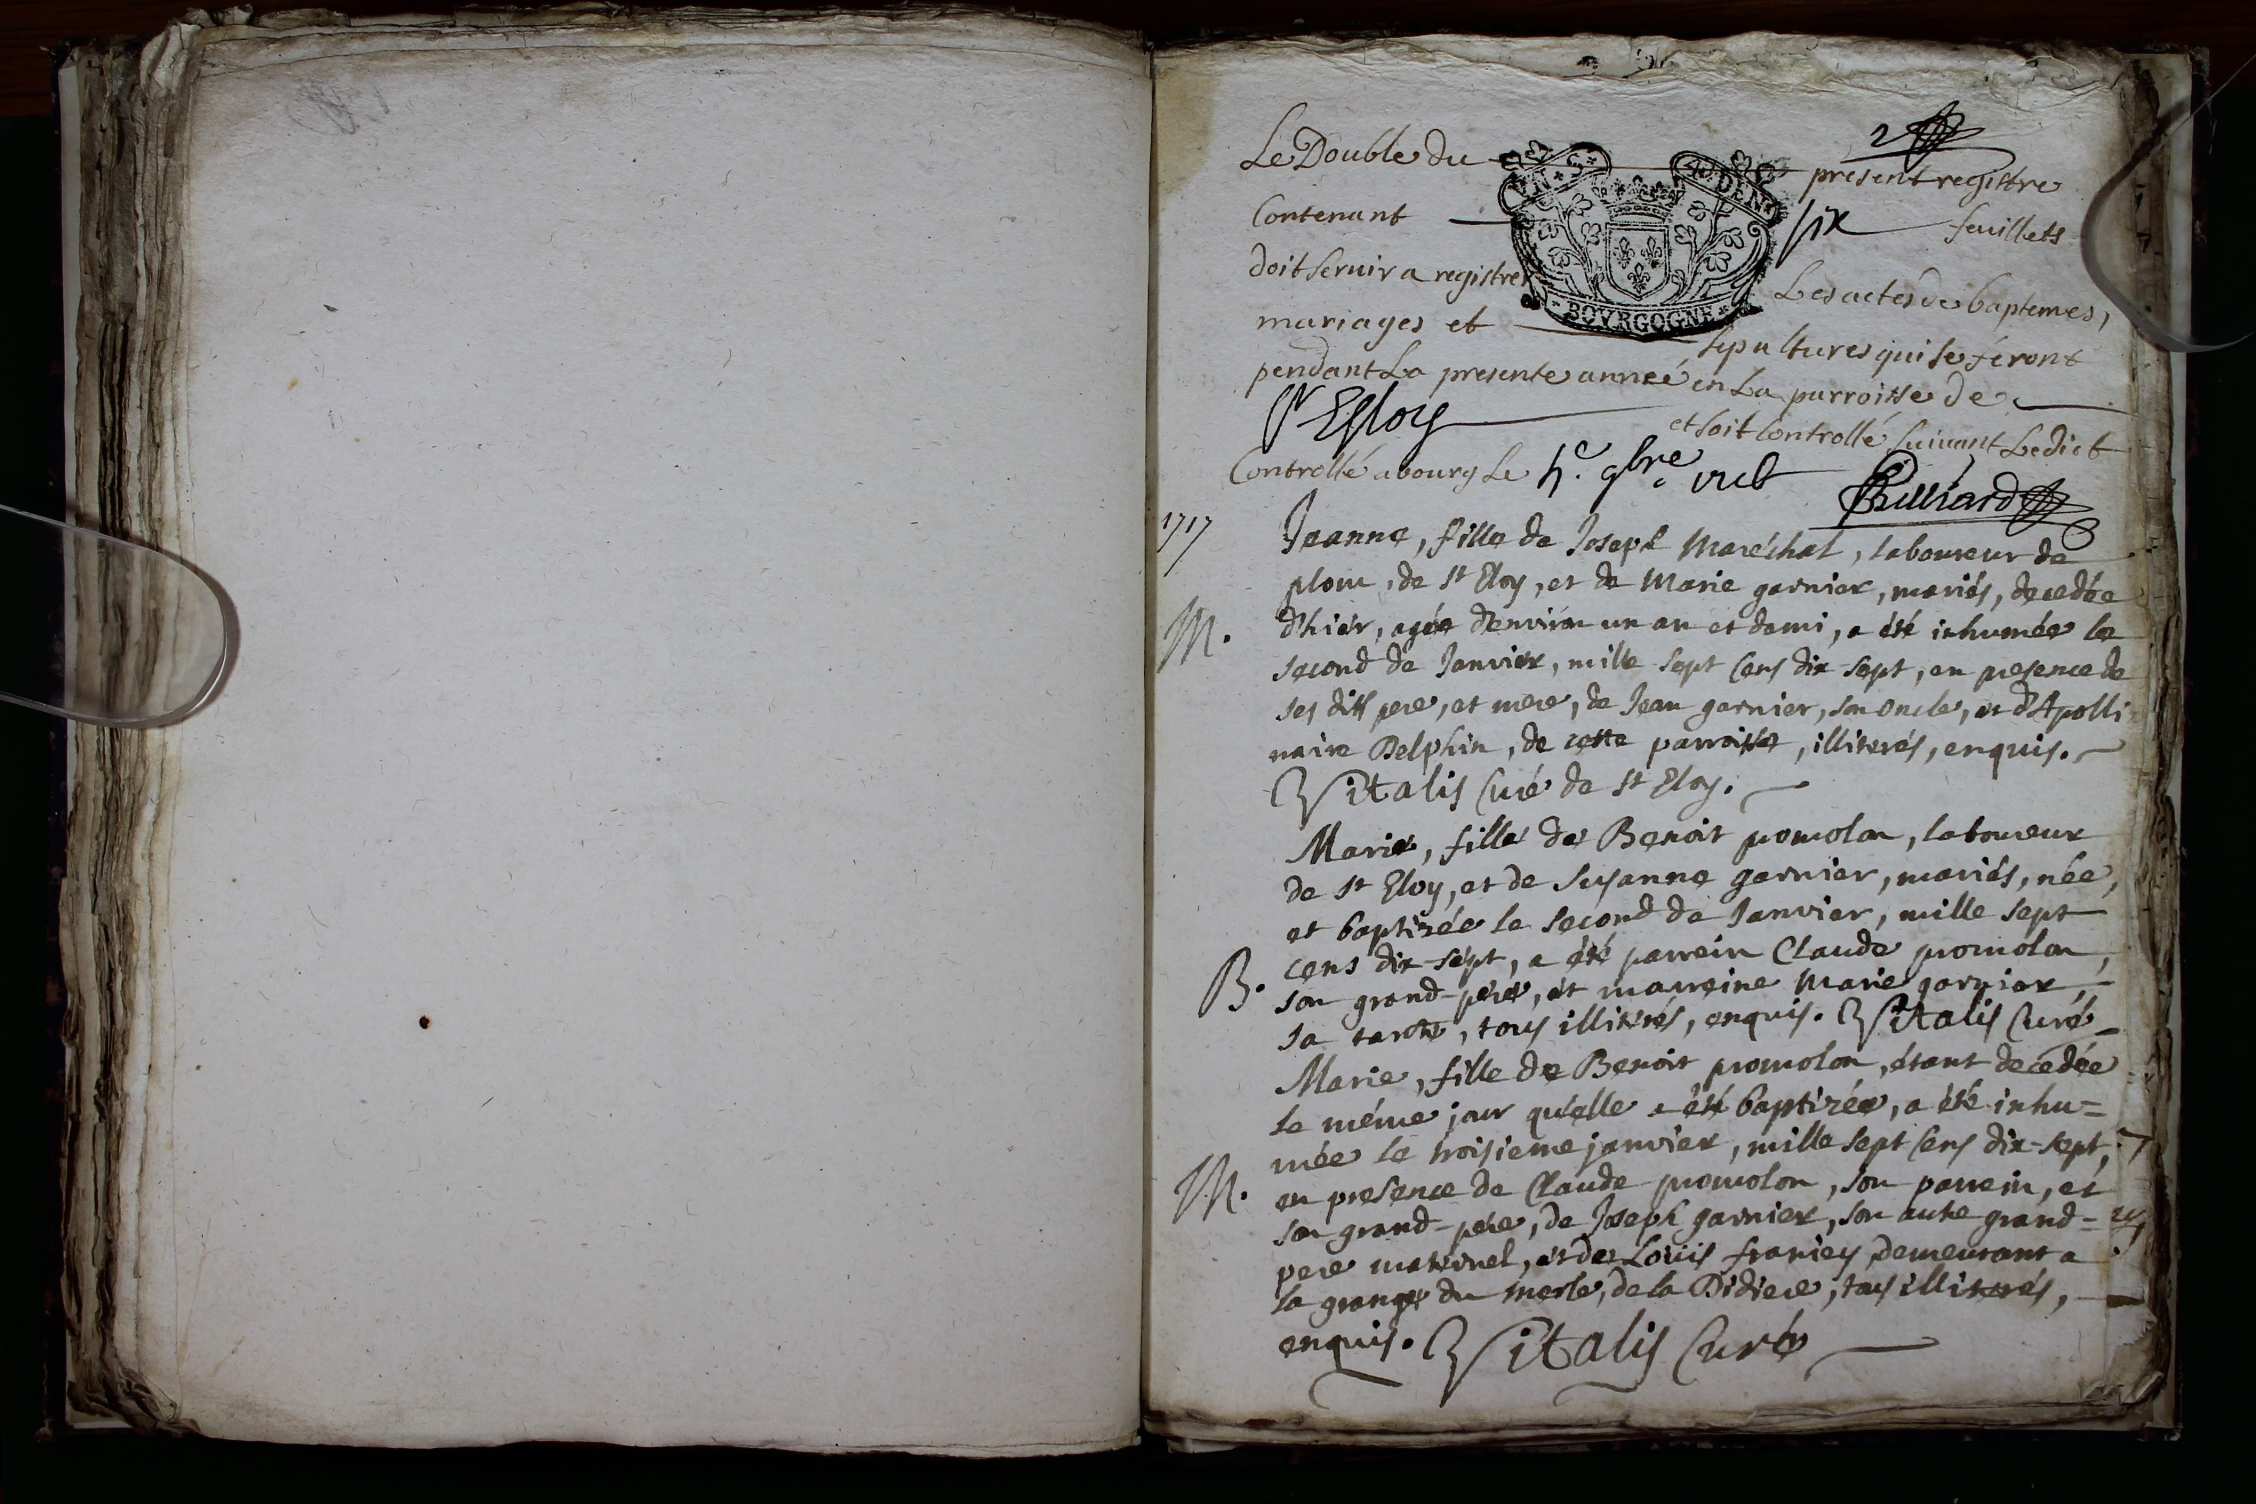 2
Le Double du present registre
Contenant six feuillets
doit servir a registrer Les actes de baptemes,
mariages et sepultures qui se feront
pendant La presente anneé en La parroisse de
St Esloy et soit Controllé suivant Ledict
Controllé a bourg Le 9bre
UN S. 4. DEN.
BOVRGOGNE
1717
Jeanne, fille de Joseph Maréchal, laboureur de
plom, de st Eloy, et de Marie garnier, mariés, decedée
d'hiér, agée d'environ un an et demi, a été inhumée le
M.
second de Janvier, mille sept cens dix-sept, en presence de
ses dits pere, et mere, de Jean garnier, son oncle, et d'Apolli=
naire Delphin, de cette parroisse, illiterés, enquis.
Vitalis Curé de st Eloy.
Marie, fille de Benoit pomolon, laboureur
de st Eloy, et de Susanne garnier, mariés, née,
et baptisée le second de Janvier, mille sept
B. cens dix-sept, a été parrein Claude promolon,
son grand-pere, et marreine Marie garnier,
sa tante, tous illiterés, enquis. Vitalis Curé
Marie, fille de Benoit promolon, étant decedée
le méme jour qu'elle a été baptizée, a été inhu=
mée le troisieme janvier, mille sept cens dix-sept,
M. en presence de Claude promolon, son parrein, et
son grand-pere, de Joseph garnier, son autre grand=
pere maternel, et de Loüis franiey demeurant a
la grange du merle, de la Didiere, tous illiterés,
enquis. Vitalis Curé